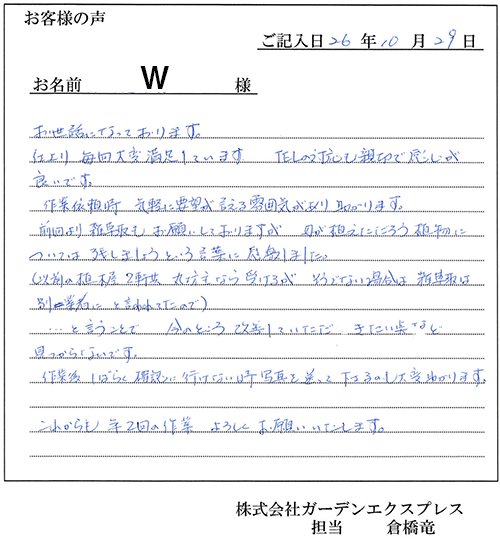 お客様の声
ご記入日 26 年 10 月 29 日
お名前 W 様
お世話になっております。
仕上り 毎回大変満足しています TELの対応も親切で感じが
良いです。
作業依頼時 気軽に要望が言える雰囲気があり助かります。
前回より 除草取もお願いしておりますが 母が植えたであろう植物に
ついては 残しましょうという言葉に感激しました。
(以前の植木屋 2軒共 丸坊主なら受けるが そうでない場合は 除草取は
別業者に と言われてたので)
…と言うことで 今のところ 改善していただきたい点など
見つからないです。
作業後 しばらく確認に行けない時 写真を送って下さるのも大変助かります。
これからも 年2回の作業 よろしくお願いいたします。
株式会社ガーデンエクスプレス
担当 倉橋竜